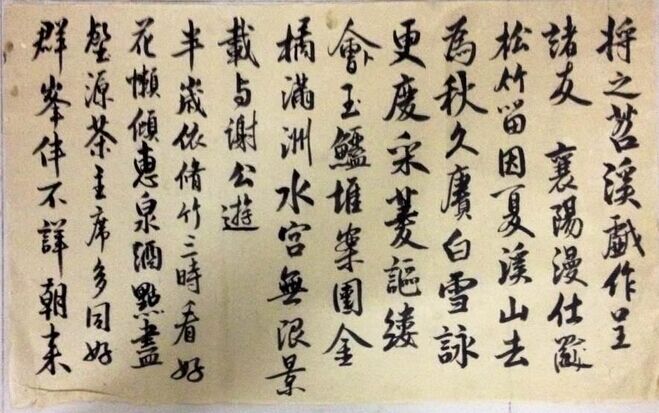 将之苕溪戲作呈
諸友 襄陽漫仕黻
松竹留因夏溪山去
為秋久賡白雪詠
更度采菱謳縷
會玉鱸堆案團金
橘滿洲水宮無限景
載与謝公遊
半歲依脩竹三時看好
花懶傾惠泉酒點盡
壑源茶主席多同好
群峯伴不譁朝来